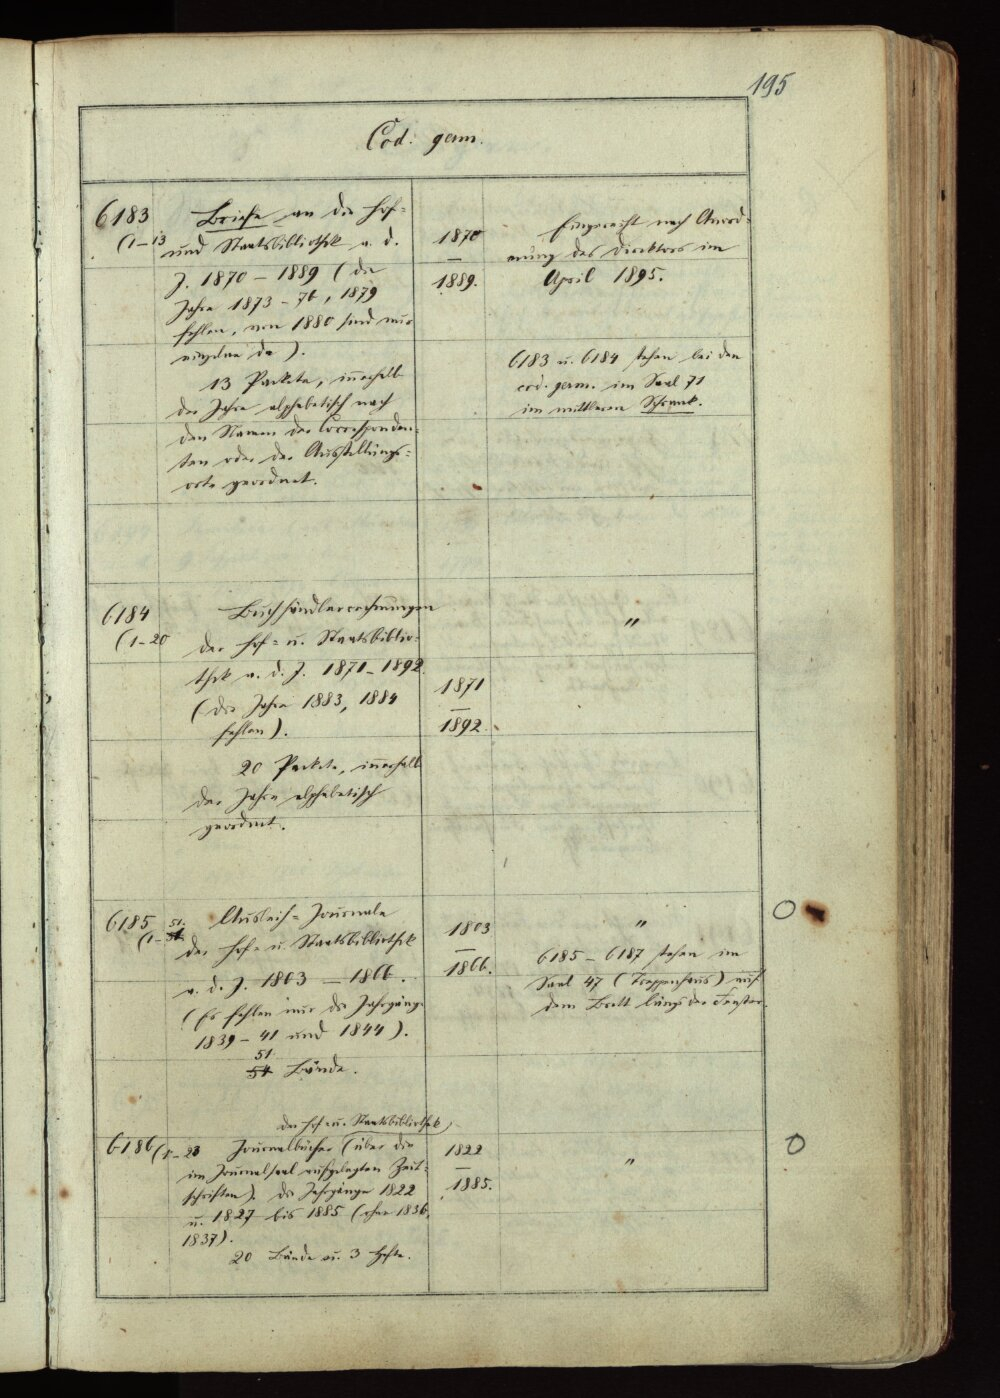 195
Cod. germ.
6183
(1–13
Briefe an die Hof-
und Staatsbibliothek a. d.
J. 1870 – 1889 (die
Jahre 1873 – 76, 1879
fehlen, von 1880 sind nur
einzelne da).
13 Packete, innerhalb
der Jahre alphabetisch nach
den Namen der Corresponden-
ten oder der Ausstellungs-
orte geordnet.
1870
–
1889.
Eingereiht nach Anord-
nung des Direktors im
April 1895.
6183 u. 6184 stehen bei den
cod. germ. im Saal 71
im mittleren Schrank.
6184
(1–20
Buchhändlerrechnungen
der Hof- u. Staatsbiblio-
thek a. d. J. 1871 – 1892.
(die Jahre 1883, 1884
fehlen).
20 Packete, innerhalb
der Jahre alphabetisch
geordnet.
1871
–
1892.
"
6185
(1–54 51.
Ausleih-Journale
der Hof- u. Staatsbibliothek
a. d. J. 1803 – 1866.
(Es fehlen nur die Jahrgänge
1839 – 41 und 1844).
51
54 Bände.
1803
–
1866.
"
6185 – 6187 stehen im
Saal 47 (Treppenhaus) auf
dem Brett längs der Fenster.
der Hof- u. Staatsbibliothek
6186 (1–23
Journalbücher (über die
im Journalsaal aufgelegten Zeit-
schriften). die Jahrgänge 1822
u. 1827 bis 1885 (ohne 1836,
1837).
20 Bände u. 3 Hefte.
1822
–
1885.
"